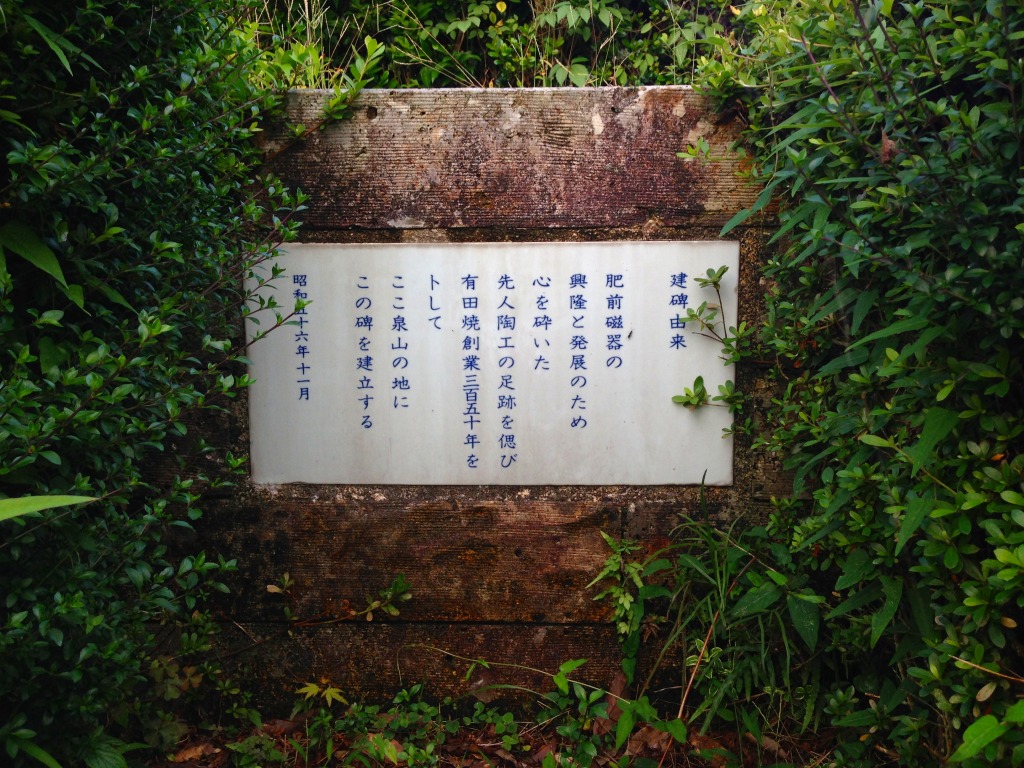 建碑由来
肥前磁器の
興隆と発展のため
心を砕いた
先人陶工の足跡を偲び
有田焼創業三百五十年を
卜して
ここ泉山の地に
この碑を建立する
昭和五十六年十一月